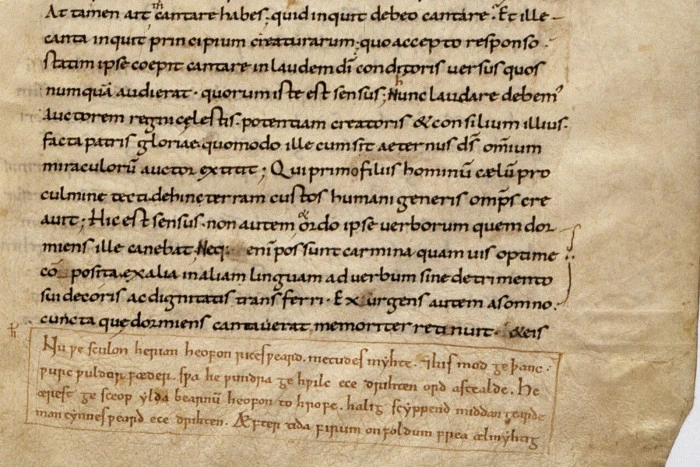 At tamen ait cantare habes; quid inquit debeo cantare. Et ille
canta inquit principium creaturarum; quo accepto responso.
statim ipse coepit cantare in laudem dī conditoris versus quos
numquā audierat. quorum iste est sensus; Nunc laudare debem᾽
auctorem regni cęlestis. potentiam creatoris & consilium illius.
facta patris gloriae. quomodo ille cum sit aeternus dꝰ omnium
miraculorū auctor extitit; Qui primo filiis hominū cælū pro
culmine tecti dehinc terram custos humani generis omps cre
avit; Hic est sensus. non autem ordo ipse verborum quem dor
miens ille canebat. Neq; eni possunt carmina quamvis optime
cō posita ex alia in aliam linguam ad verbum sine detrimento
sui decoris ac dignitatis transferri. Exurgens autem a somno.
cuncta que dormiens cantaverat memoriter retinuit. &eis
Nu ƿe sculon herian heofon ricesƿeard. metudes myhte. ⁊ his mod ge þanc.
ƿurc ƿuldor fæder. sƿa he ƿundra ge hƿilc ece drihten ord astealde. He
ærest ge sceop ylda bearnū heofon to hrofe. halig scyppend middan gearde
man cynnes ƿeard ece drihten. Æfter tida firum on foldum frea ælmyhtig